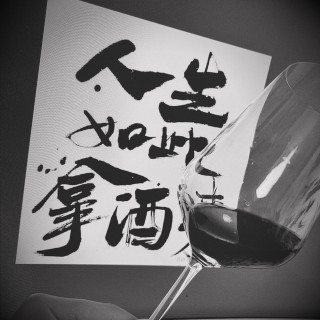 人生
如此
拿酒